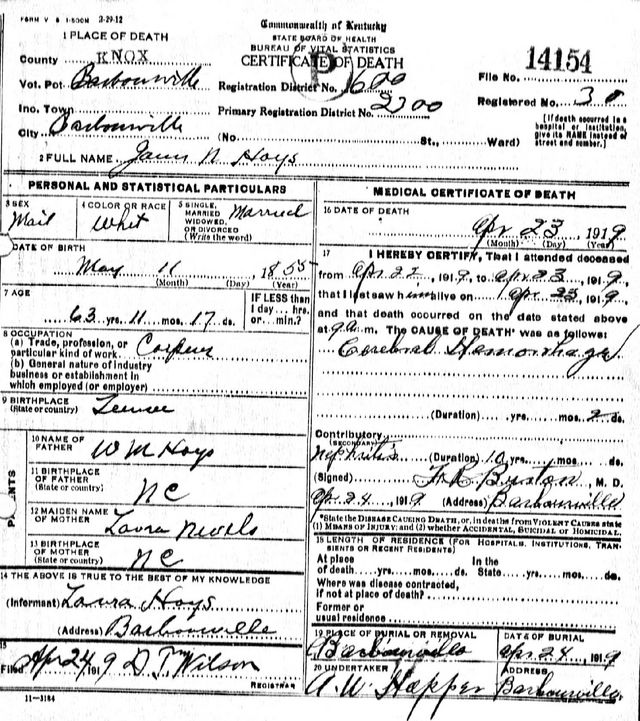 FORM V S 1-500M 2-29-12
Commonwealth of Kentucky
STATE BOARD OF HEALTH
BUREAU OF VITAL STATISTICS
CERTIFICATE OF DEATH
1 PLACE OF DEATH
County KNOX
Vot. Pct Barbourville
Inc. Town
City Barbourville (No. St., Ward)
Registration District No. 600
Primary Registration District No. 2200
File No. 14154
Registered No. 30
[If death occurred in a hospital or institution, give its NAME instead of street and number.]
P
2 FULL NAME James N. Hays
PERSONAL AND STATISTICAL PARTICULARS
3 SEX Mail
4 COLOR OR RACE Whit
5 SINGLE, MARRIED WIDOWED, OR DIVORCED (Write the word) Married
6 DATE OF BIRTH
May 11 1855
(Month) (Day) (Year)
7 AGE
63 yrs. 11 mos. 17 ds.
IF LESS than 1 day ... hrs. or ... min.?
8 OCCUPATION
(a) Trade, profession, or particular kind of work
(b) General nature of industry business or establishment in which employed (or employer)
9 BIRTHPLACE
(State or country)
PARENTS
10 NAME OF FATHER W M Hays
11 BIRTHPLACE OF FATHER (State or country) NC
12 MAIDEN NAME OF MOTHER Laura
13 BIRTHPLACE OF MOTHER (State or country) NC
14 THE ABOVE IS TRUE TO THE BEST OF MY KNOWLEDGE
(Informant) Laura Hays
(Address) Barbourville
15
Filed Apr 24 1919 Wilson
REGISTRAR
11-3184
MEDICAL CERTIFICATE OF DEATH
16 DATE OF DEATH
Apr 23 1919
(Month) (Day) (Year)
17 I HEREBY CERTIFY, That I attended deceased
from Apr 22, 1919, to Apr 23, 1919,
that I last saw him alive on Apr 23, 1919,
and that death occurred on the date stated above
at 9 a. m. The CAUSE OF DEATH* was as follows:
Cerebral Hemorrhage
(Duration) yrs. mos. 2 ds.
Contributory
(SECONDARY)
Nephritis (Duration) 10 yrs. mos. ds.
(Signed) Burton, M. D.
Apr 24, 1919 (Address) Barbourville
*State the DISEASE CAUSING DEATH, or, in deaths from VIOLENT CAUSES state
(1) MEANS OF INJURY; and (2) whether ACCIDENTAL, SUICIDAL OF HOMICIDAL.
18 LENGTH OF RESIDENCE (FOR HOSPITALS, INSTITUTIONS, TRANSIENTS OR RECENT RESIDENTS)
At place of death yrs. mos. ds. In the State yrs. mos. ds.
Where was disease contracted, if not at place of death?
Former or usual residence
19 PLACE OF BURIAL OR REMOVAL Barbourville
DATE OF BURIAL Apr 24, 1919
20 UNDERTAKER A. W. Hopper
ADDRESS Barbourville